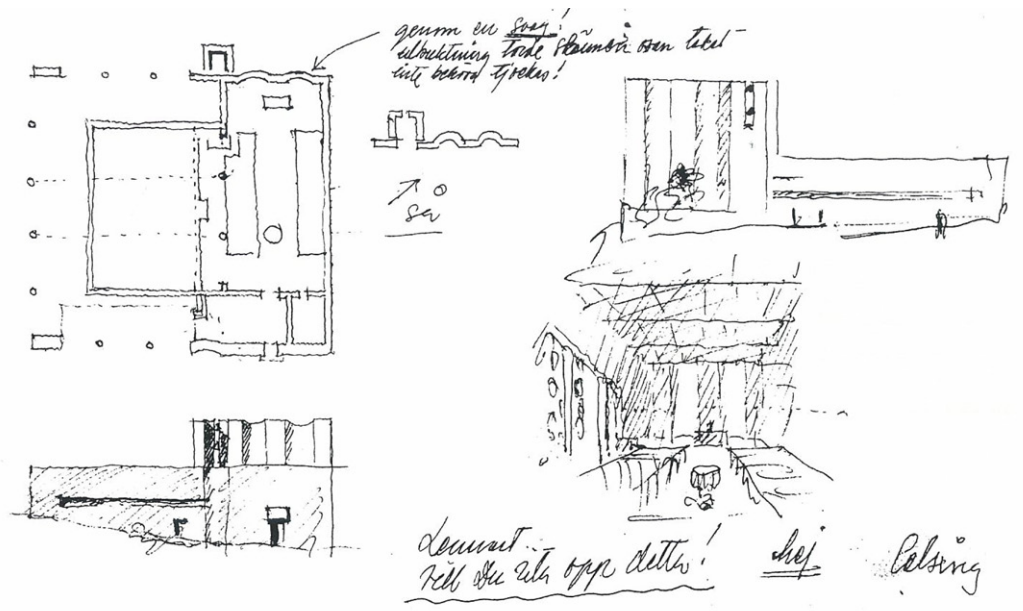 genom en svag!
utbuktning torde skärmen ovan taket
inte behöva tjockas!
se
Lennart
vill Du rita opp detta!
hej
Celsing